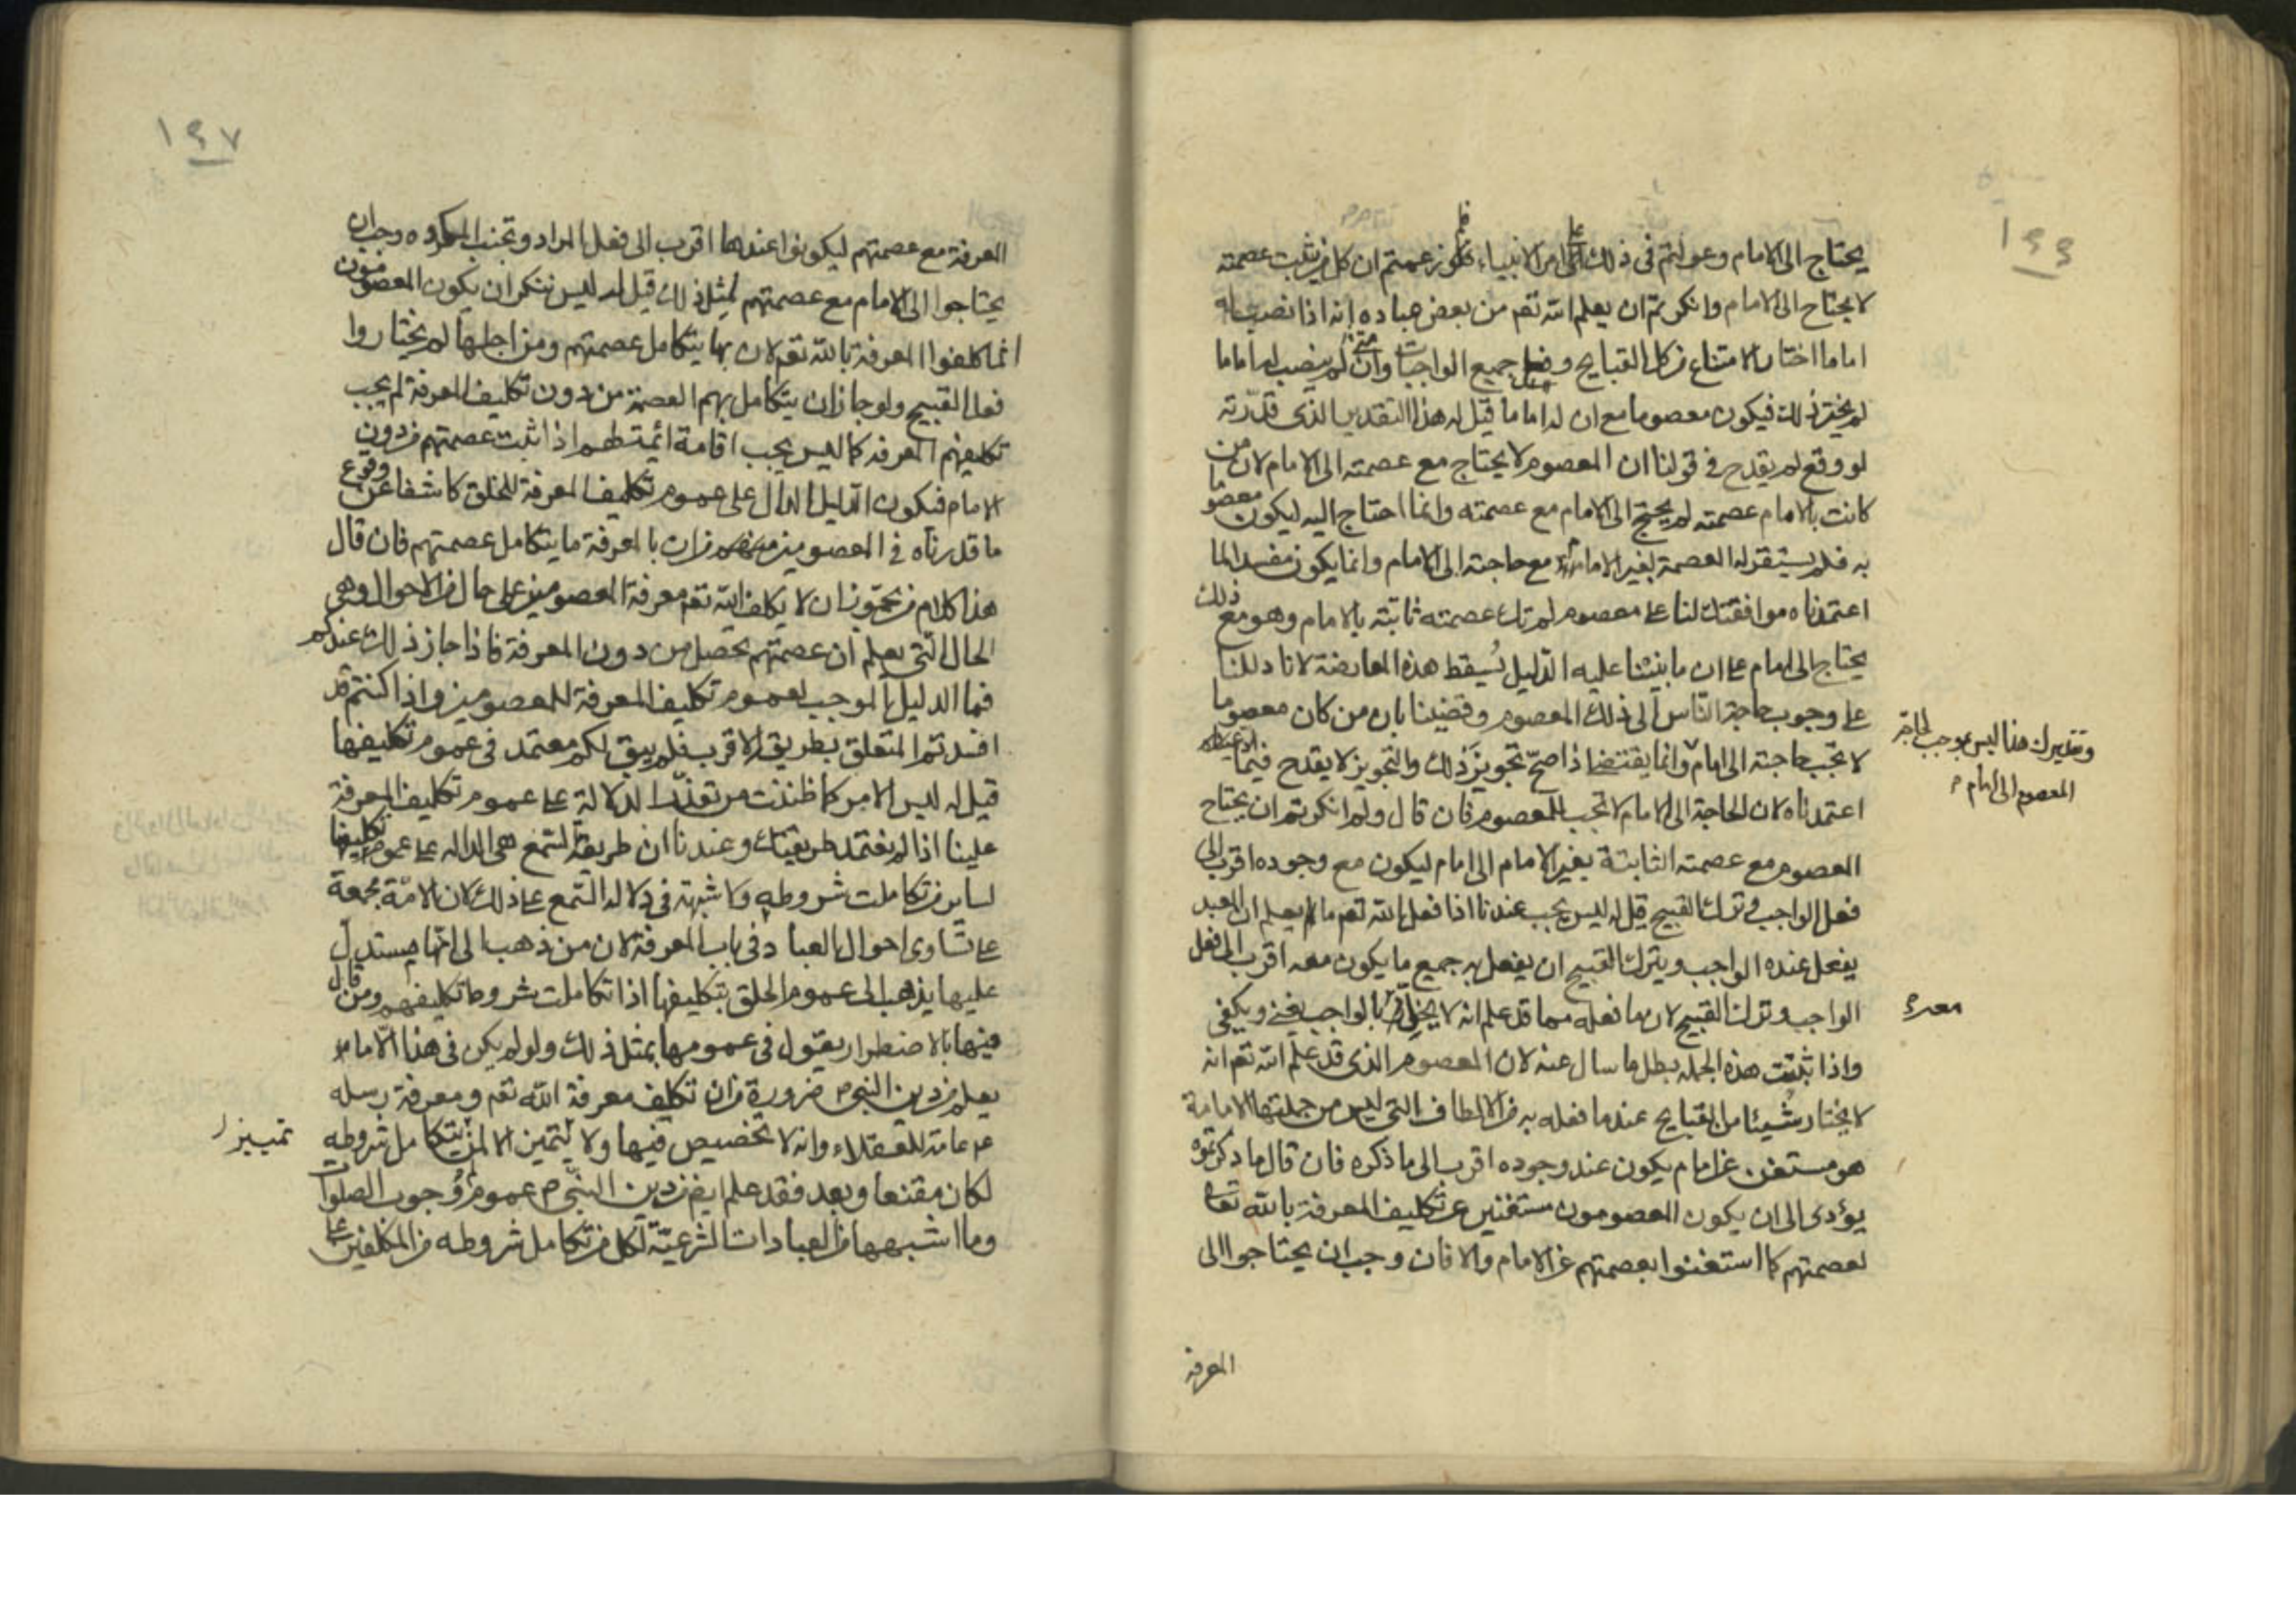 ١٤٦
يحتاج الى الامام وعولتم فى ذلك على امر الانبياء فلم زعمتم ان كل من ثبت عصمته
لا يحتاج الى الامام وانكرتم ان يعلم الله تعم من بعض عباده انه اذا نصب له
اماما اختار الامتناع من كل القبايح وفعل جميع الواجبات وانه متى لم ينصب له اماما
لم يختر ذلك فيكون معصوما مع ان له اماما قيل له هذا التقدير الذى قدّرته
لو وقع لم يقدح فى قولنا ان المعصوم لا يحتاج مع عصمته الى الامام لان من
كانت بالامام عصمته لم يحتج الى الامام مع عصمته وانما احتاج اليه ليكون معصوما
به فلم يستقر له العصمة بغير الامام مع حاجته الى الامام وانما يكون مفسدا لما
اعتمدناه موافقتك لنا على معصوم لم تك عصمته ثابتة بالامام وهو مع ذلك
يحتاج الى امام على ان ما بنينا عليه الدليل يُسقط هذه المعارضة لانا دللنا
على وجوب حاجة الناس الى ذلك المعصوم وقضينا بان من كان معصوما
لا تجب حاجته الى امام وانما يقتضى اذا صحّ تجويز ذلك والتجويز لا يقدح فيما
وتقديرك هذا ليس بوجب لحاجة
المعصوم الى امام
اعتمدناه لان الحاجة الى الامام لا تجب للمعصوم فان قال ولم انكرتم ان يحتاج
المعصوم مع عصمته الثابتة بغير الامام الى امام ليكون مع وجوده اقرب الى
فعل الواجب وترك القبيح قيل له ليس يجب عندنا اذا فعل الله تعم ما يعلم ان العبد
يفعل عنده الواجب ويترك القبيح ان يفعل به جميع ما يكون معه اقرب الى فعل
الواجب وترك القبيح لان ما فعله مما قد علم انه لا يخلّ بالواجب يغنى ويكفى
معه
واذا ثبتت هذه الجملة بطل ما سال عنه لان المعصوم الذى قد علم الله تعم انه
لا يختار شيئا من القبايح عند ما فعله به من الالطاف التى ليس من جملتها الامامة
هو مستغن عن امام يكون عند وجوده اقرب الى ما ذكره فان قال ما ذكرتموه
يؤدى الى ان يكون المعصومون مستغنين عن تكليف المعرفة بالله تعالى
لعصمتهم كما استغنوا بعصمتهم عن الامام والا فان وجب ان يحتاجوا الى
المعرفة
١٤٧
المعرفة مع عصمتهم ليكونوا عندها اقرب الى فعل المراد وتجنب المكروه وجب ان
يحتاجوا الى الامام مع عصمتهم لمثل ذلك قيل له ليس ننكر ان يكون المعصومون
انما كلفوا المعرفة بالله تعم لان بها يتكامل عصمتهم ومن اجلها لم يختاروا
فعل القبيح ولو جاز ان يتكامل بهم العصمة من دون تكليف المعرفة لم يجب
تكليفهم المعرفة كما ليس يجب اقامة ائمة لهم اذا ثبت عصمتهم من دون
الامام فيكون الدليل الدال على عموم تكليف المعرفة للخلق كاشفا عن وقوع
ما قدرناه فى المعصومين من ان بالمعرفة ما يتكامل عصمتهم فان قال
هذا كلام من يجوّز ان لا يكلف الله تعم معرفة المعصومين على حال من الاحوال وهى
الحال التى يعلم ان عصمتهم تحصل من دون المعرفة فاذا جاز ذلك عندكم
فما الدليل الموجب لعموم تكليف المعرفة للمعصومين واذا كنتم قد
افسدتم المتعلق بطريق الاقرب فلم يبق لكم معتمد فى عموم تكليفها
قيل له ليس الامر كما ظننت من تعذّر الدلالة على عموم تكليف المعرفة
علينا اذا لم نعتمد طريقتك وعندنا ان طريقة السّمع هى الدالة على عموم تكليفها
لساير من تكاملت شروطه ولا شبهة فى دلالة السّمع على ذلك لان الامّة مجمعة
على تساوى احوال العباد فى باب المعرفة لان من ذهب الى انها يستدلّ
عليها يذهب الى عموم الخلق بتكليفها اذا تكاملت شروط تكليفهم ومن قال
فيها بالاضطرار يقول فى عمومها بمثل ذلك ولو لم يكن فى هذا الا ما
يعلم من دين النبى ص ضرورة من ان تكليف معرفة الله تعم ومعرفة رسله
عامة للعقلاء وانه لا تخصيص فيها ولا يتميز الا لمن يتكامل شروطه
تمييز
لكان مقنعا وبعد فقد علم ايض من دين النبى ص عموم وجوب الصلوات
وما اشبهها من العبادات الشرعيّة لكل من تكامل شروطه من المكلفين على